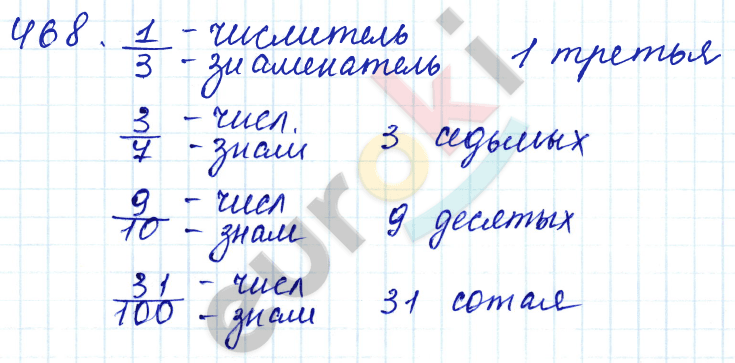 468. 1/3 - числитель - знаменатель 1 третья
3/7 - числ. - знам 3 седьмых
9/10 - числ - знам 9 десятых
31/100 - числ - знам 31 сотая
euroki